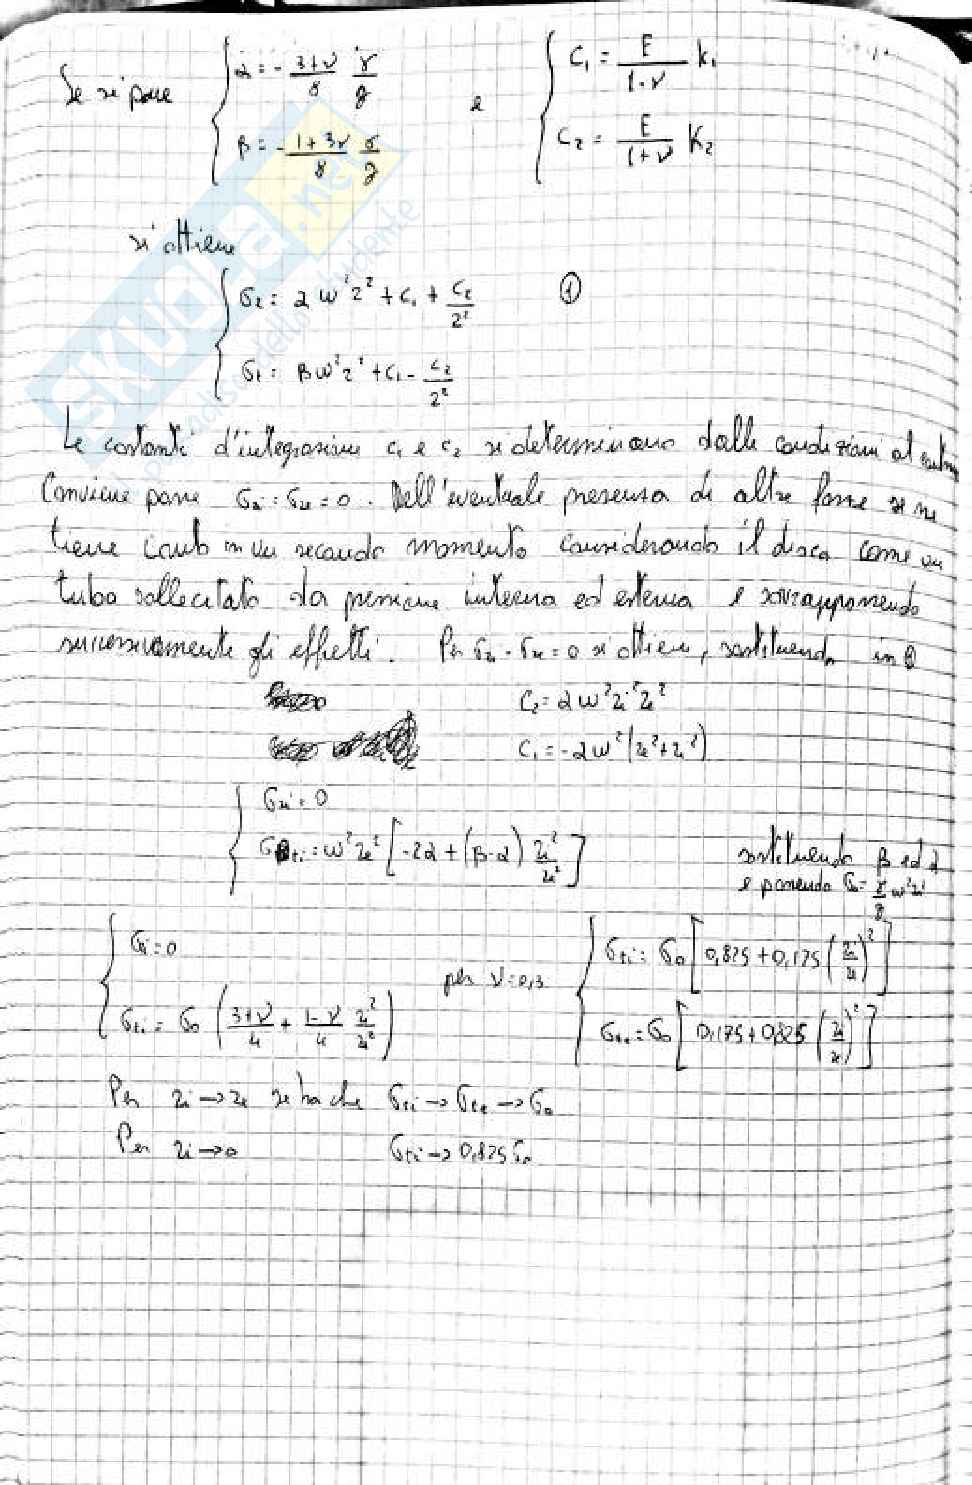 Se si pone { α = - 3+ν/8 γ/g e { C₁ = E/1-ν k₁
β = - 1+3ν/8 γ/g C₂ = E/1+ν K₂
si ottiene
{ σr = α ω² r² + C₁ + C₂/r² ①
σt = β ω² r² + C₁ - C₂/r²
Le costanti d'integrazione C₁ e C₂ si determinano dalle condizioni al
Conviene porre σri = σre = 0. Dell'eventuale presenza di altre forze se ne
tiene conto in un secondo momento considerando il disco come un
tubo sollecitato da pressione interna ed esterna e sovrapponendo
successivamente gli effetti. Per σri = σre = 0 si ottiene, sostituendo in ①
C₂ = α ω² ri² re²
C₁ = - α ω² (re² + ri²)
{ σri = 0
σti = ω² re² [ -2α + (β-α) ri²/re² ]
sostituendo β ed α
e ponendo σ₀ = γ/g ω² re²
{ σri = 0
σti = σ₀ ( 3+ν/4 + 1-ν/4 ri²/re² )
per ν = 0,3
{ σti = σ₀ [ 0,825 + 0,175 (ri/re)² ]
σte = σ₀ [ 0,175 + 0,825 (ri/re)² ]
Per ri → re si ha che σti → σte → σ₀
Per ri → 0 σti → 0,825 σ₀
SKUOLA.net
paradiso dello studente